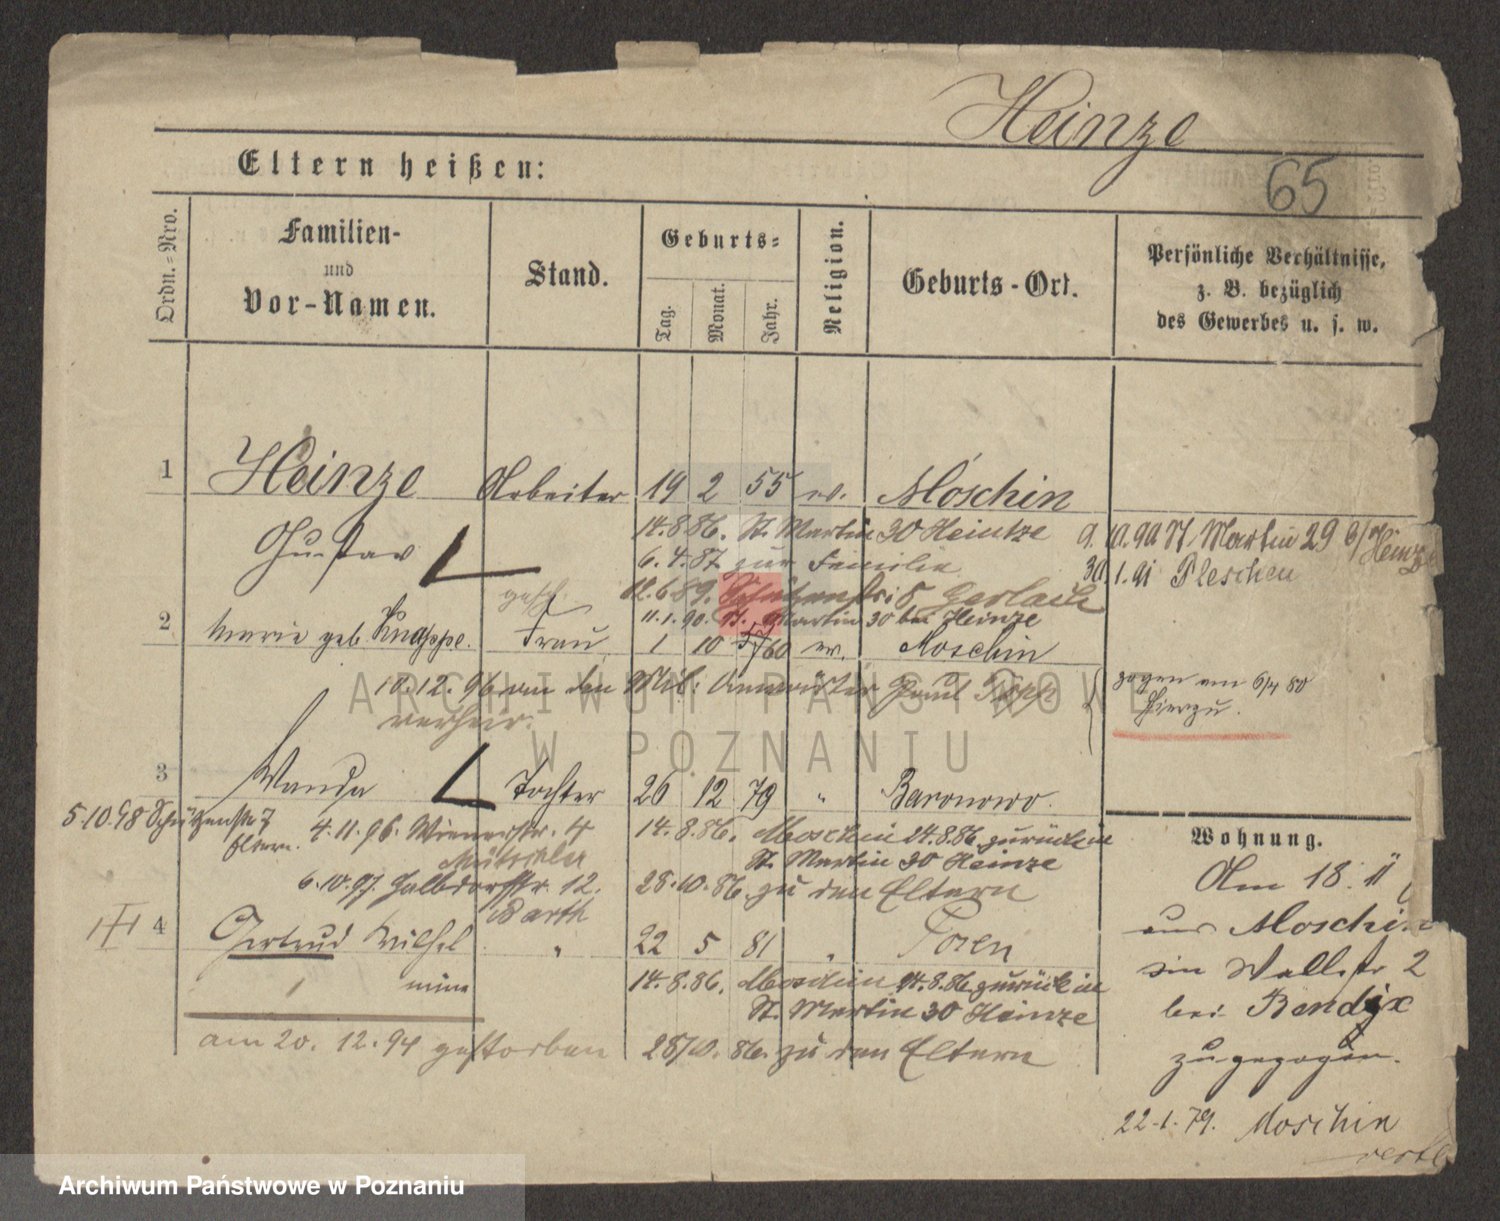 Heinze
65
Eltern heißen:
Ordn.=Nro.
Familien-
und
Vor-Namen.
Stand.
Geburts=
Tag.
Monat.
Jahr.
Religion.
Geburts-Ort.
Persönliche Verhältnisse,
z. B. bezüglich
des Gewerbes u. s. w.
1 Heinze Arbeiter 19 2 55 ev. Moschin
Gustav
14.8.86. St. Martin 30 Heintze
6.4.87 zur Familie
12.6.89. Schützenstr: 5 Gerlach
11.1.90. St. Martin 30 bei Heinze
9.10.90 St. Martin 29 b/ Heinze
30.1.91 Pleschen
gesch.
2 Marie geb. Knappe. Frau 1 10 60 ev. Moschin
10.12.96 an den Mil: Anwärter Paul
verheir.
zogen am 6/4 80
hierzu.
3 Wanda Tochter 26 12 79 " Baronowo.
5.10.98 Schützenstr 7
Eltern.
4.11.96. Wienerstr. 4
6.10.97. Halbdorfstr. 12.
Barth
14.8.86. Moschin 24.8.86. zurück in
St. Martin 30 Heinze
28.10.86. zu den Eltern
4 Gertrud Wilhel
mine
" 22 5 81 " Posen
14.8.86. Moschin 24.8.86. zurück in
St. Martin 30 Heinze
28/10.86. zu den Eltern
am 20.12.94 gestorben
Wohnung.
Am 18.
aus Moschin
in Wallstr 2
bei Bendix
zugezogen.
22.1.79. Moschin
ARCHIWUM PAŃSTWOWE
W POZNANIU
Archiwum Państwowe w Poznaniu